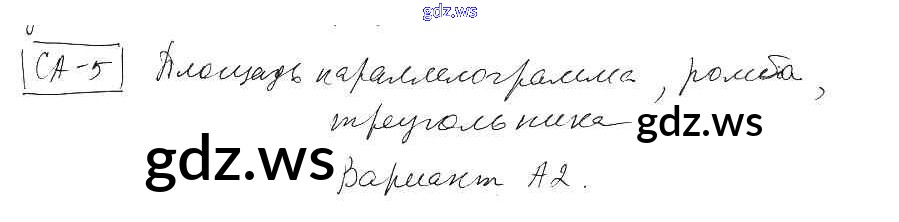 gdz.ws
СА-5 Площадь параллелограмма, ромба,
треугольника gdz.ws
gdz.ws
Вариант А2.